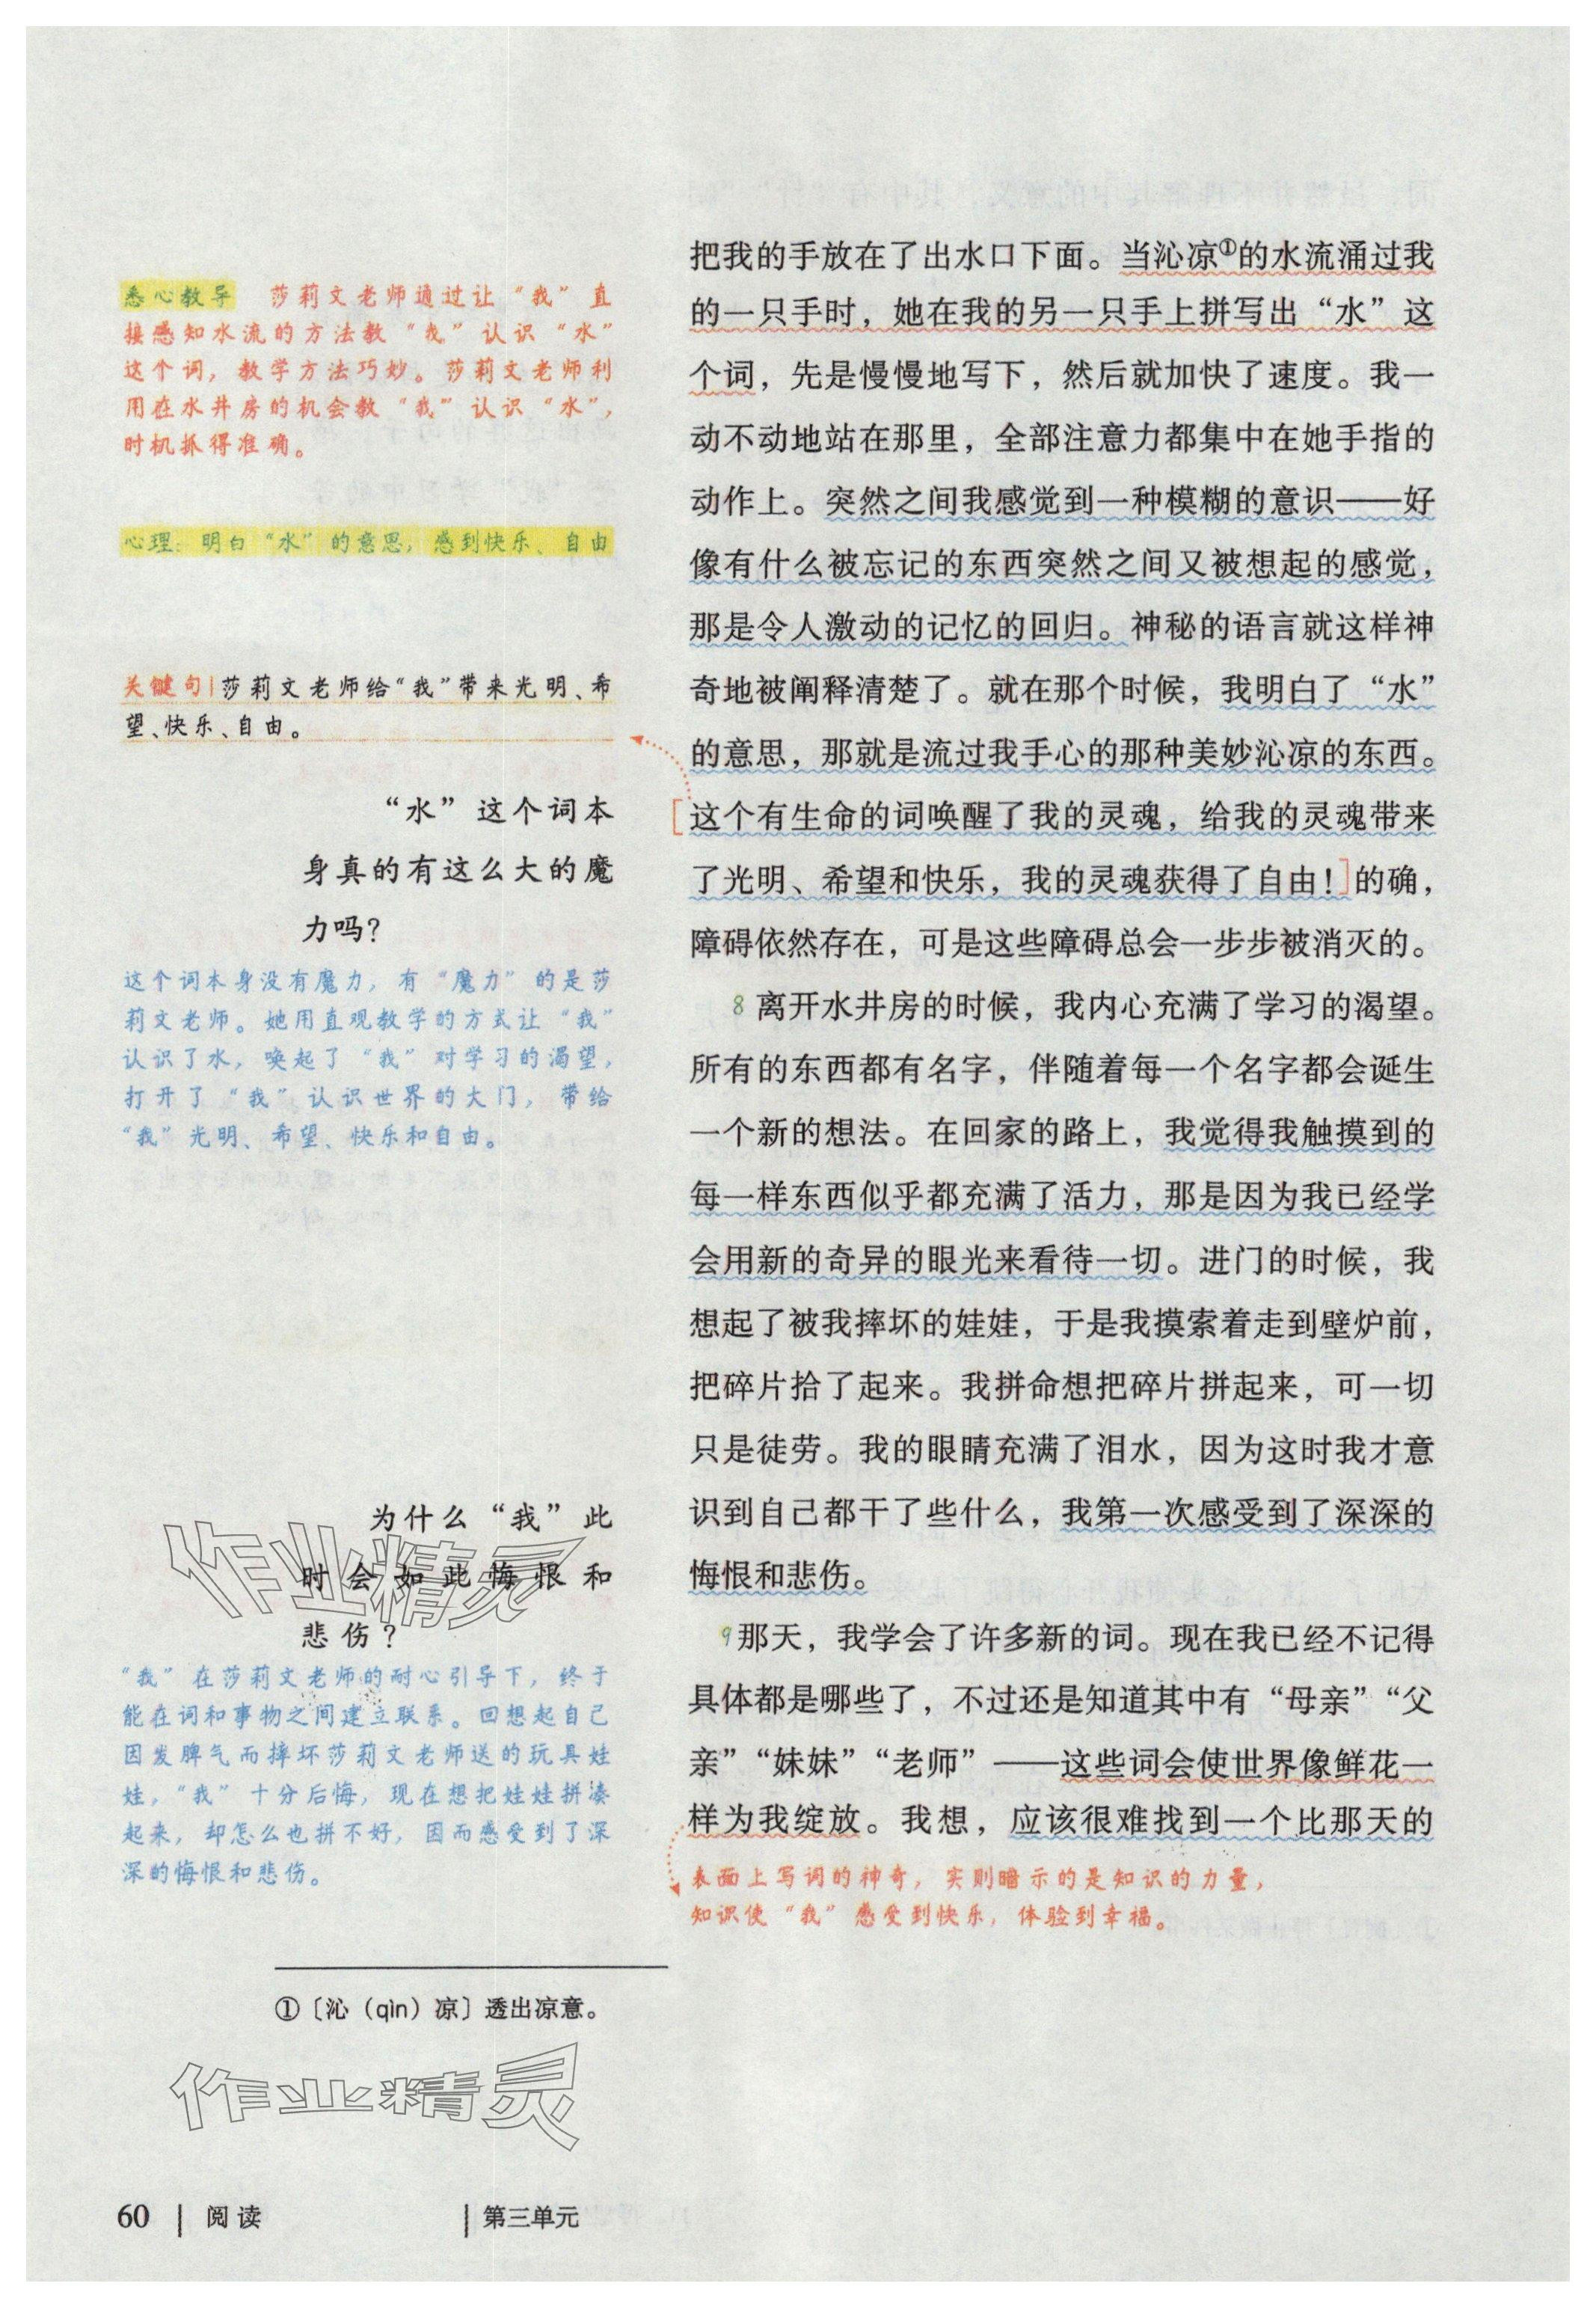 悉心教导 莎莉文老师通过让“我”直
接感知水流的方法教“我”认识“水”
这个词，教学方法巧妙。莎莉文老师利
用在水井房的机会教“我”认识“水”，
时机抓得准确。
心理：明白“水”的意思，感到快乐、自由
关键句|莎莉文老师给“我”带来光明、希
望、快乐、自由。
“水”这个词本
身真的有这么大的魔
力吗？
这个词本身没有魔力，有“魔力”的是莎
莉文老师。她用直观教学的方式让“我”
认识了水，唤起了“我”对学习的渴望，
打开了“我”认识世界的大门，带给
“我”光明、希望、快乐和自由。
为什么“我”此
时会如此悔恨和
悲伤？
作业精灵
“我”在莎莉文老师的耐心引导下，终于
能在词和事物之间建立联系。回想起自己
因发脾气而摔坏莎莉文老师送的玩具娃
娃，“我”十分后悔，现在想把娃娃拼凑
起来，却怎么也拼不好，因而感受到了深
深的悔恨和悲伤。
把我的手放在了出水口下面。当沁凉①的水流涌过我
的一只手时，她在我的另一只手上拼写出“水”这
个词，先是慢慢地写下，然后就加快了速度。我一
动不动地站在那里，全部注意力都集中在她手指的
动作上。突然之间我感觉到一种模糊的意识——好
像有什么被忘记的东西突然之间又被想起的感觉，
那是令人激动的记忆的回归。神秘的语言就这样神
奇地被阐释清楚了。就在那个时候，我明白了“水”
的意思，那就是流过我手心的那种美妙沁凉的东西。
[这个有生命的词唤醒了我的灵魂，给我的灵魂带来
了光明、希望和快乐，我的灵魂获得了自由！]的确，
障碍依然存在，可是这些障碍总会一步步被消灭的。
8 离开水井房的时候，我内心充满了学习的渴望。
所有的东西都有名字，伴随着每一个名字都会诞生
一个新的想法。在回家的路上，我觉得我触摸到的
每一样东西似乎都充满了活力，那是因为我已经学
会用新的奇异的眼光来看待一切。进门的时候，我
想起了被我摔坏的娃娃，于是我摸索着走到壁炉前，
把碎片拾了起来。我拼命想把碎片拼起来，可一切
只是徒劳。我的眼睛充满了泪水，因为这时我才意
识到自己都干了些什么，我第一次感受到了深深的
悔恨和悲伤。
9 那天，我学会了许多新的词。现在我已经不记得
具体都是哪些了，不过还是知道其中有“母亲”“父
亲”“妹妹”“老师”——这些词会使世界像鲜花一
样为我绽放。我想，应该很难找到一个比那天的
表面上写词的神奇，实则暗示的是知识的力量，
知识使“我”感受到快乐，体验到幸福。
①〔沁（qìn）凉〕透出凉意。
作业精灵
60 | 阅读 | 第三单元